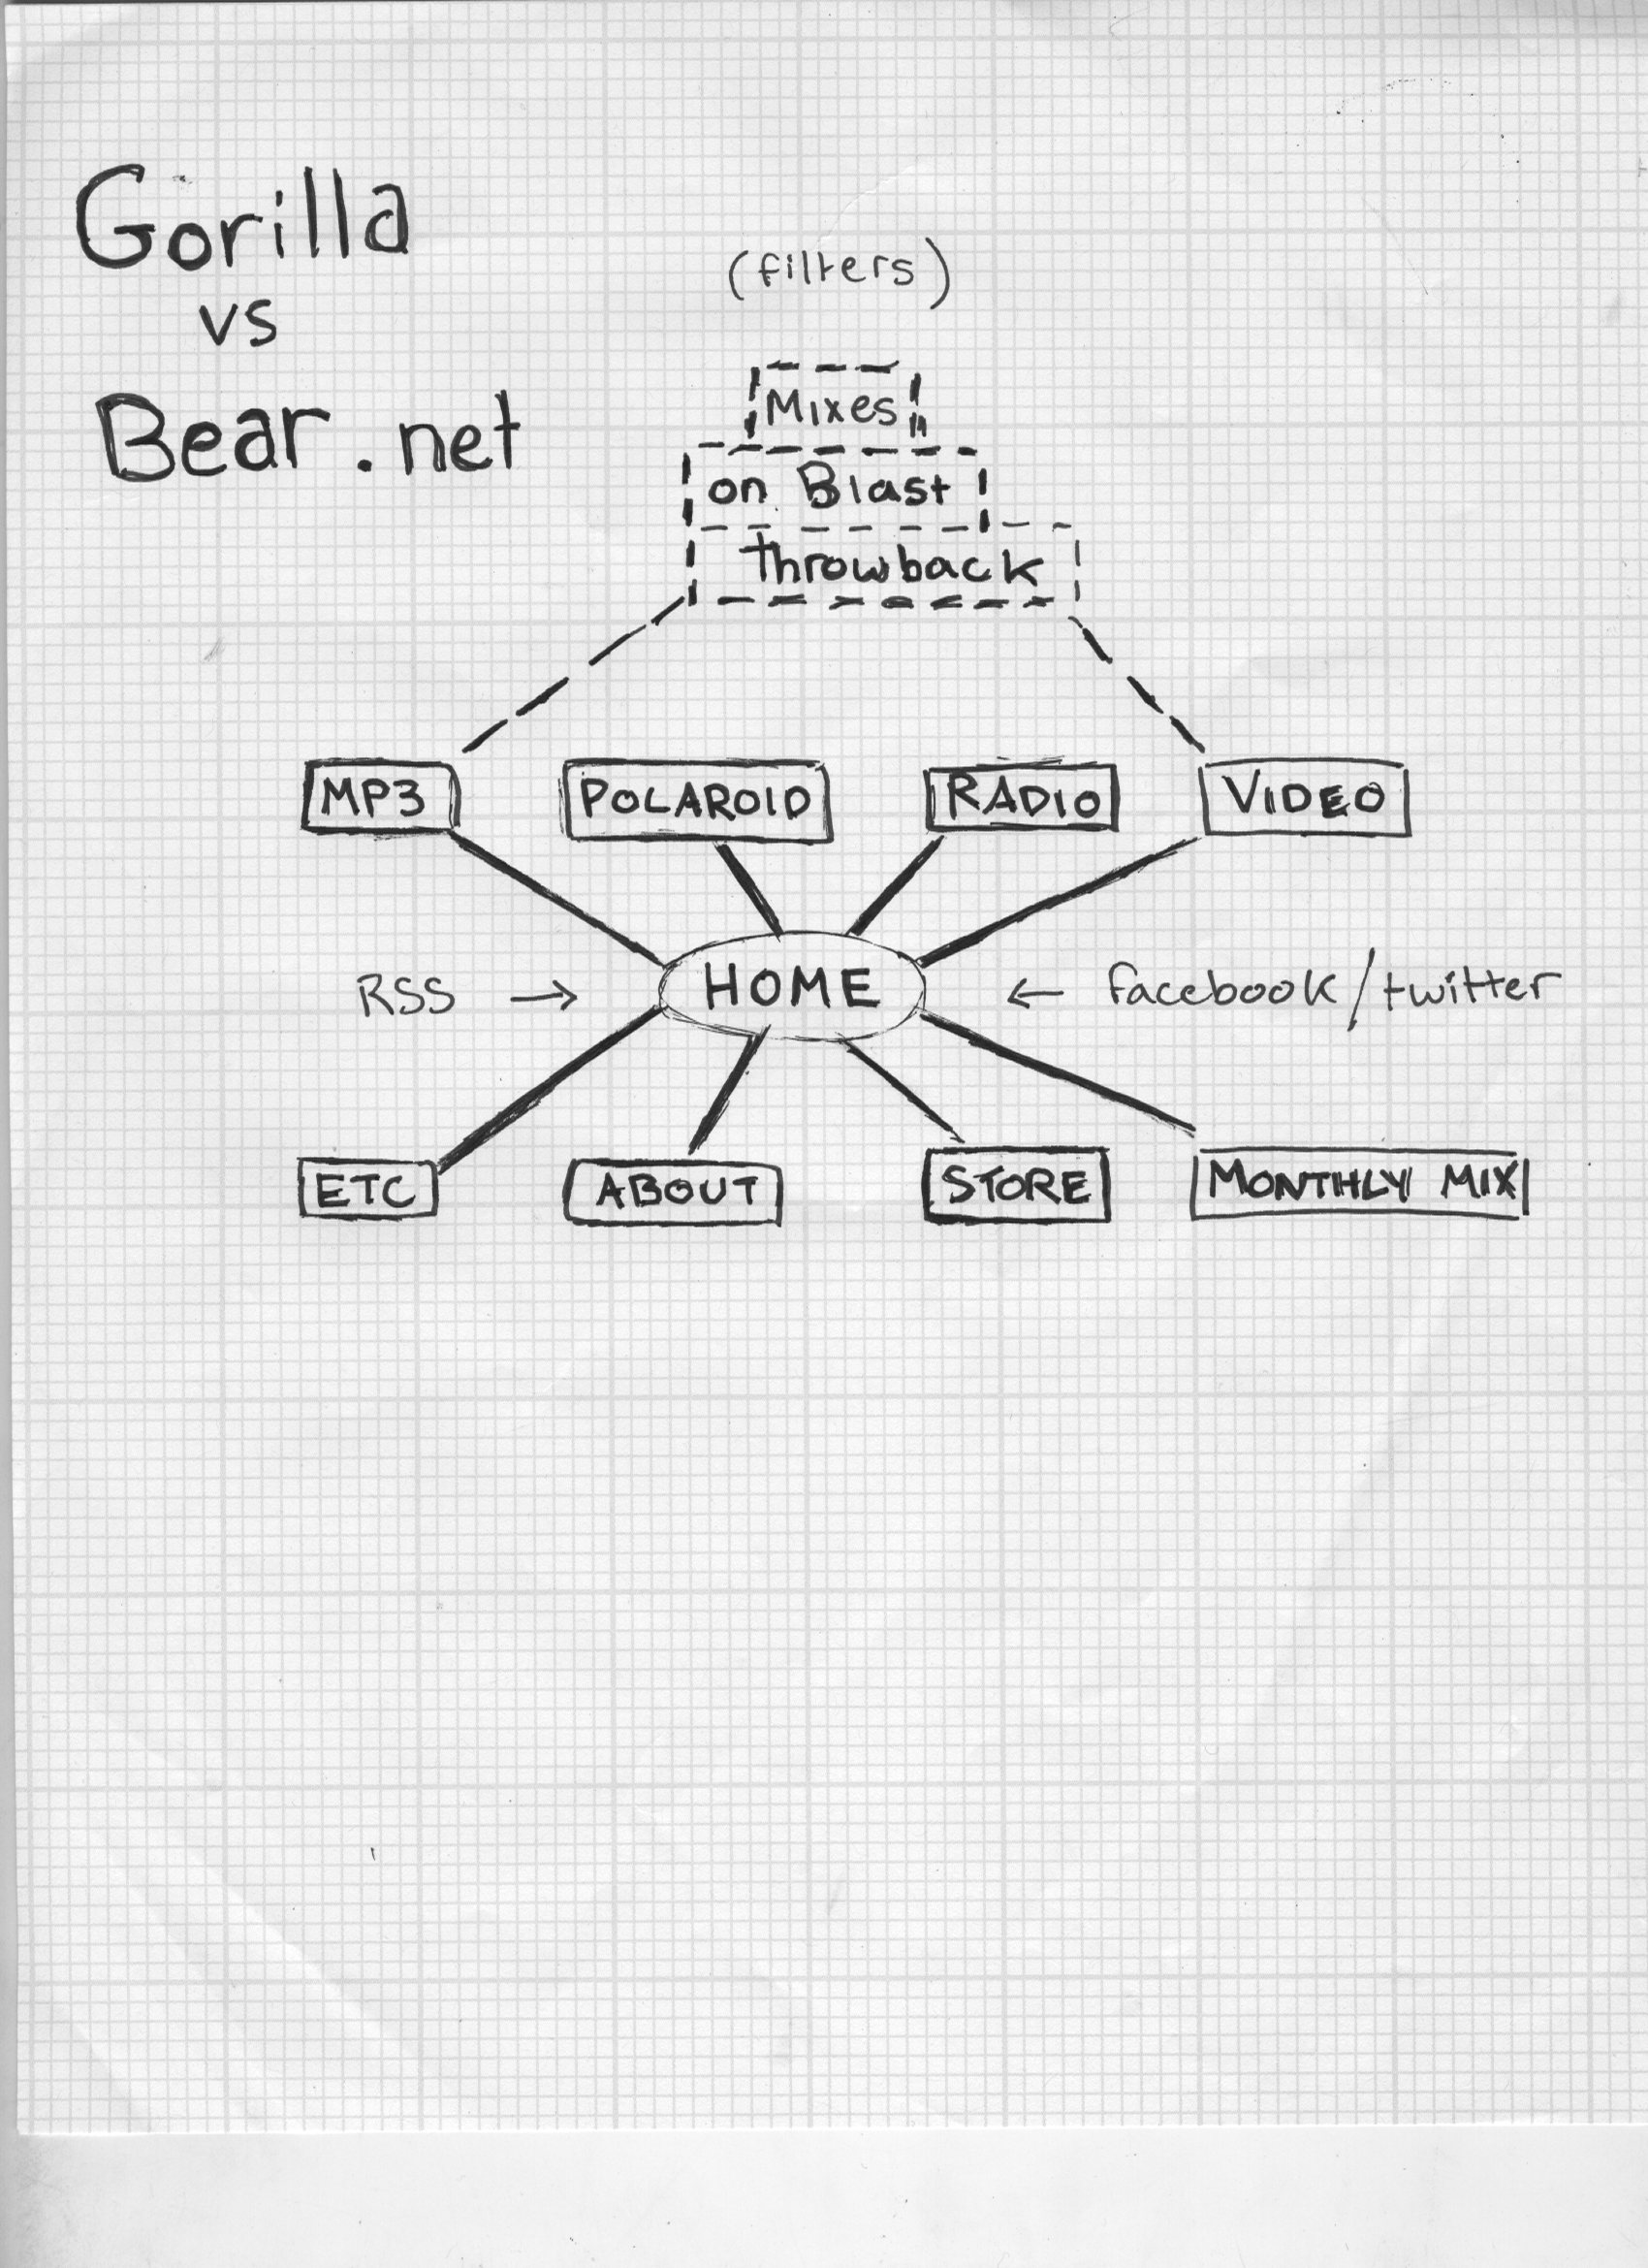 Gorilla
vs
Bear.net
(filters)
Mixes
on Blast
Throwback
MP3
POLAROID
RADIO
VIDEO
RSS →
HOME
← facebook/twitter
ETC
ABOUT
STORE
MONTHLY MIX